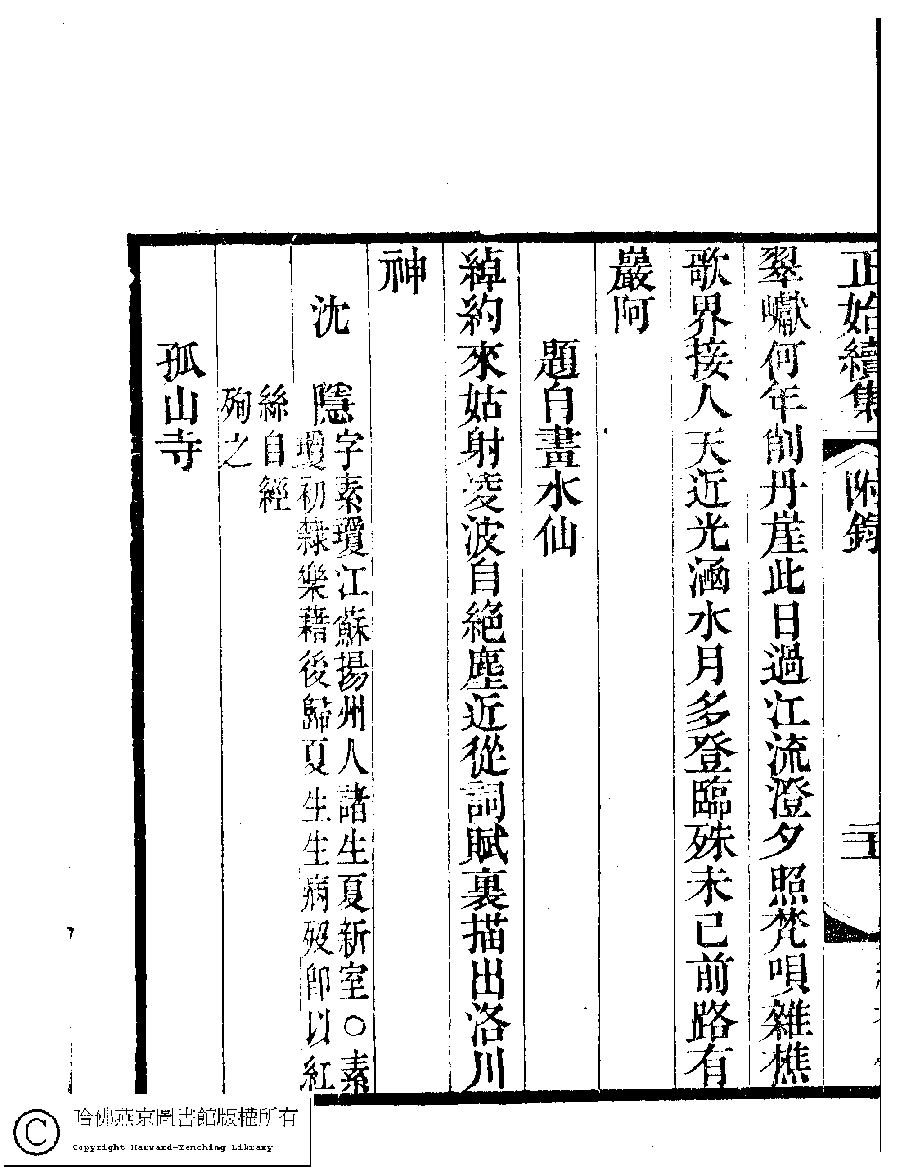 正始續集 附錄
翠巘何年削丹崖此日過江流澄夕照梵唄雜樵
歌界接人天近光涵水月多登臨殊未已前路有
巖阿
題自畫水仙
綽約來姑射凌波自絶塵近從詞賦裏描出洛川
神
沈 隱
字素瓊江蘇揚州人諸生夏新室○素
瓊初隸樂藉後歸夏生生病歿卽以紅
絲自經
殉之
孤山寺
哈佛燕京圖書館版權所有
Copyright Harvard-Yenching Library